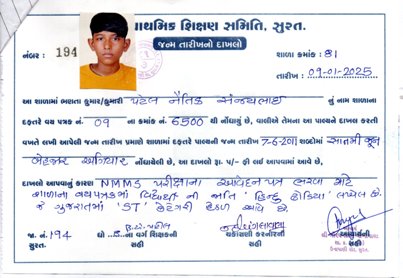 પ્રાથમિક શિક્ષણ સમિતિ, સુરત.
જન્મ તારીખનો દાખલો
નંબર : 194
શાળા ક્રમાંક : 81
તારીખ : 09-01-2025
આ શાળામાં ભણતા કુમાર/કુમારી પટેલ નૈતિક સંજયભાઇ નું નામ શાળાના
દફતરે વય પત્રક નં. 09 ના ક્રમાંક નં. 6500 થી નોંધાયું છે, વાલીએ તેમના આ પાલ્યને દાખલ કરતી
વખતે લખી આપેલી જન્મ તારીખ પ્રમાણે શાળાના દફતરે પાલ્યની જન્મ તારીખ 7-6-2011 શબ્દોમાં સાતમી જૂન
બેહજાર અગિયાર નોંધાયેલી છે, આ દાખલો રૂા. ૫/- ફી લઈ આપવામાં આવે છે.
દાખલો આપવાનું કારણ NMMS પરીક્ષાના આવેદન પત્ર ભરવા માટે
શાળાના વયપત્રકમાં વિદ્યાર્થી ની જાતિ 'હિન્દુ ઢોડિયા' લખેલ છે.
કે ગુજરાતમાં 'ST' કેટેગરી હેઠળ આવે છે.
જા. નં. 194
સુરત.
વર્ગ શિક્ષકની
સહી
ચકાસણી કરનારની
સહી
સહી